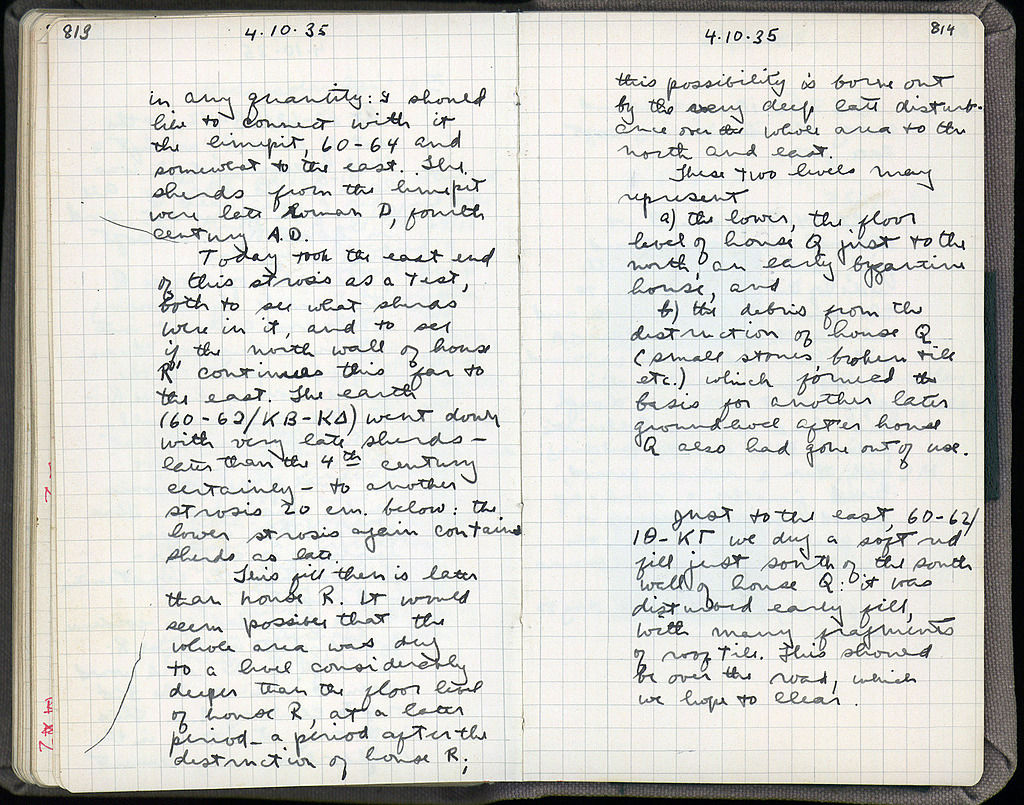 813
4.10.35
in any quantity: I should
like to connect with it
the limepit, 60-64 and
somewhat to the east. The
sherds from the limepit
were late Roman D, fourth
century A.D.
Today took the east end
of this strosis as a test,
both to see what sherds
were in it, and to see
if the north wall of house
R continues this far to
the east. The earth
(60-62/ΚΒ-ΚΔ) went down
with very late sherds -
later than the 4th century
certainly - to another
strosis 20 cm. below: the
lower strosis again contains
sherds as late.
This fill then is later
than house R. It would
seem possible that the
whole area was dug
to a level considerably
deeper than the floor level
of house R, at a later
period - a period after the
destruction of house R;
814
4.10.35
this possibility is borne out
by the very deep late disturb-
ance over the whole area to the
north and east.
These two levels may
represent
a) the lower, the floor
level of house Q just to the
north, an early byzantine
house, and
b) the debris from the
destruction of house Q
(small stones broken tile
etc.) which formed the
basis for another later
ground level after house
Q also had gone out of use.
Just to the east, 60-62/
ΙΘ-ΚΓ we dug a soft red
fill just south of the south
wall of house Q: it was
disturbed early fill,
with many fragments
of roof tile. This should
be over the road, which
we hope to clear.